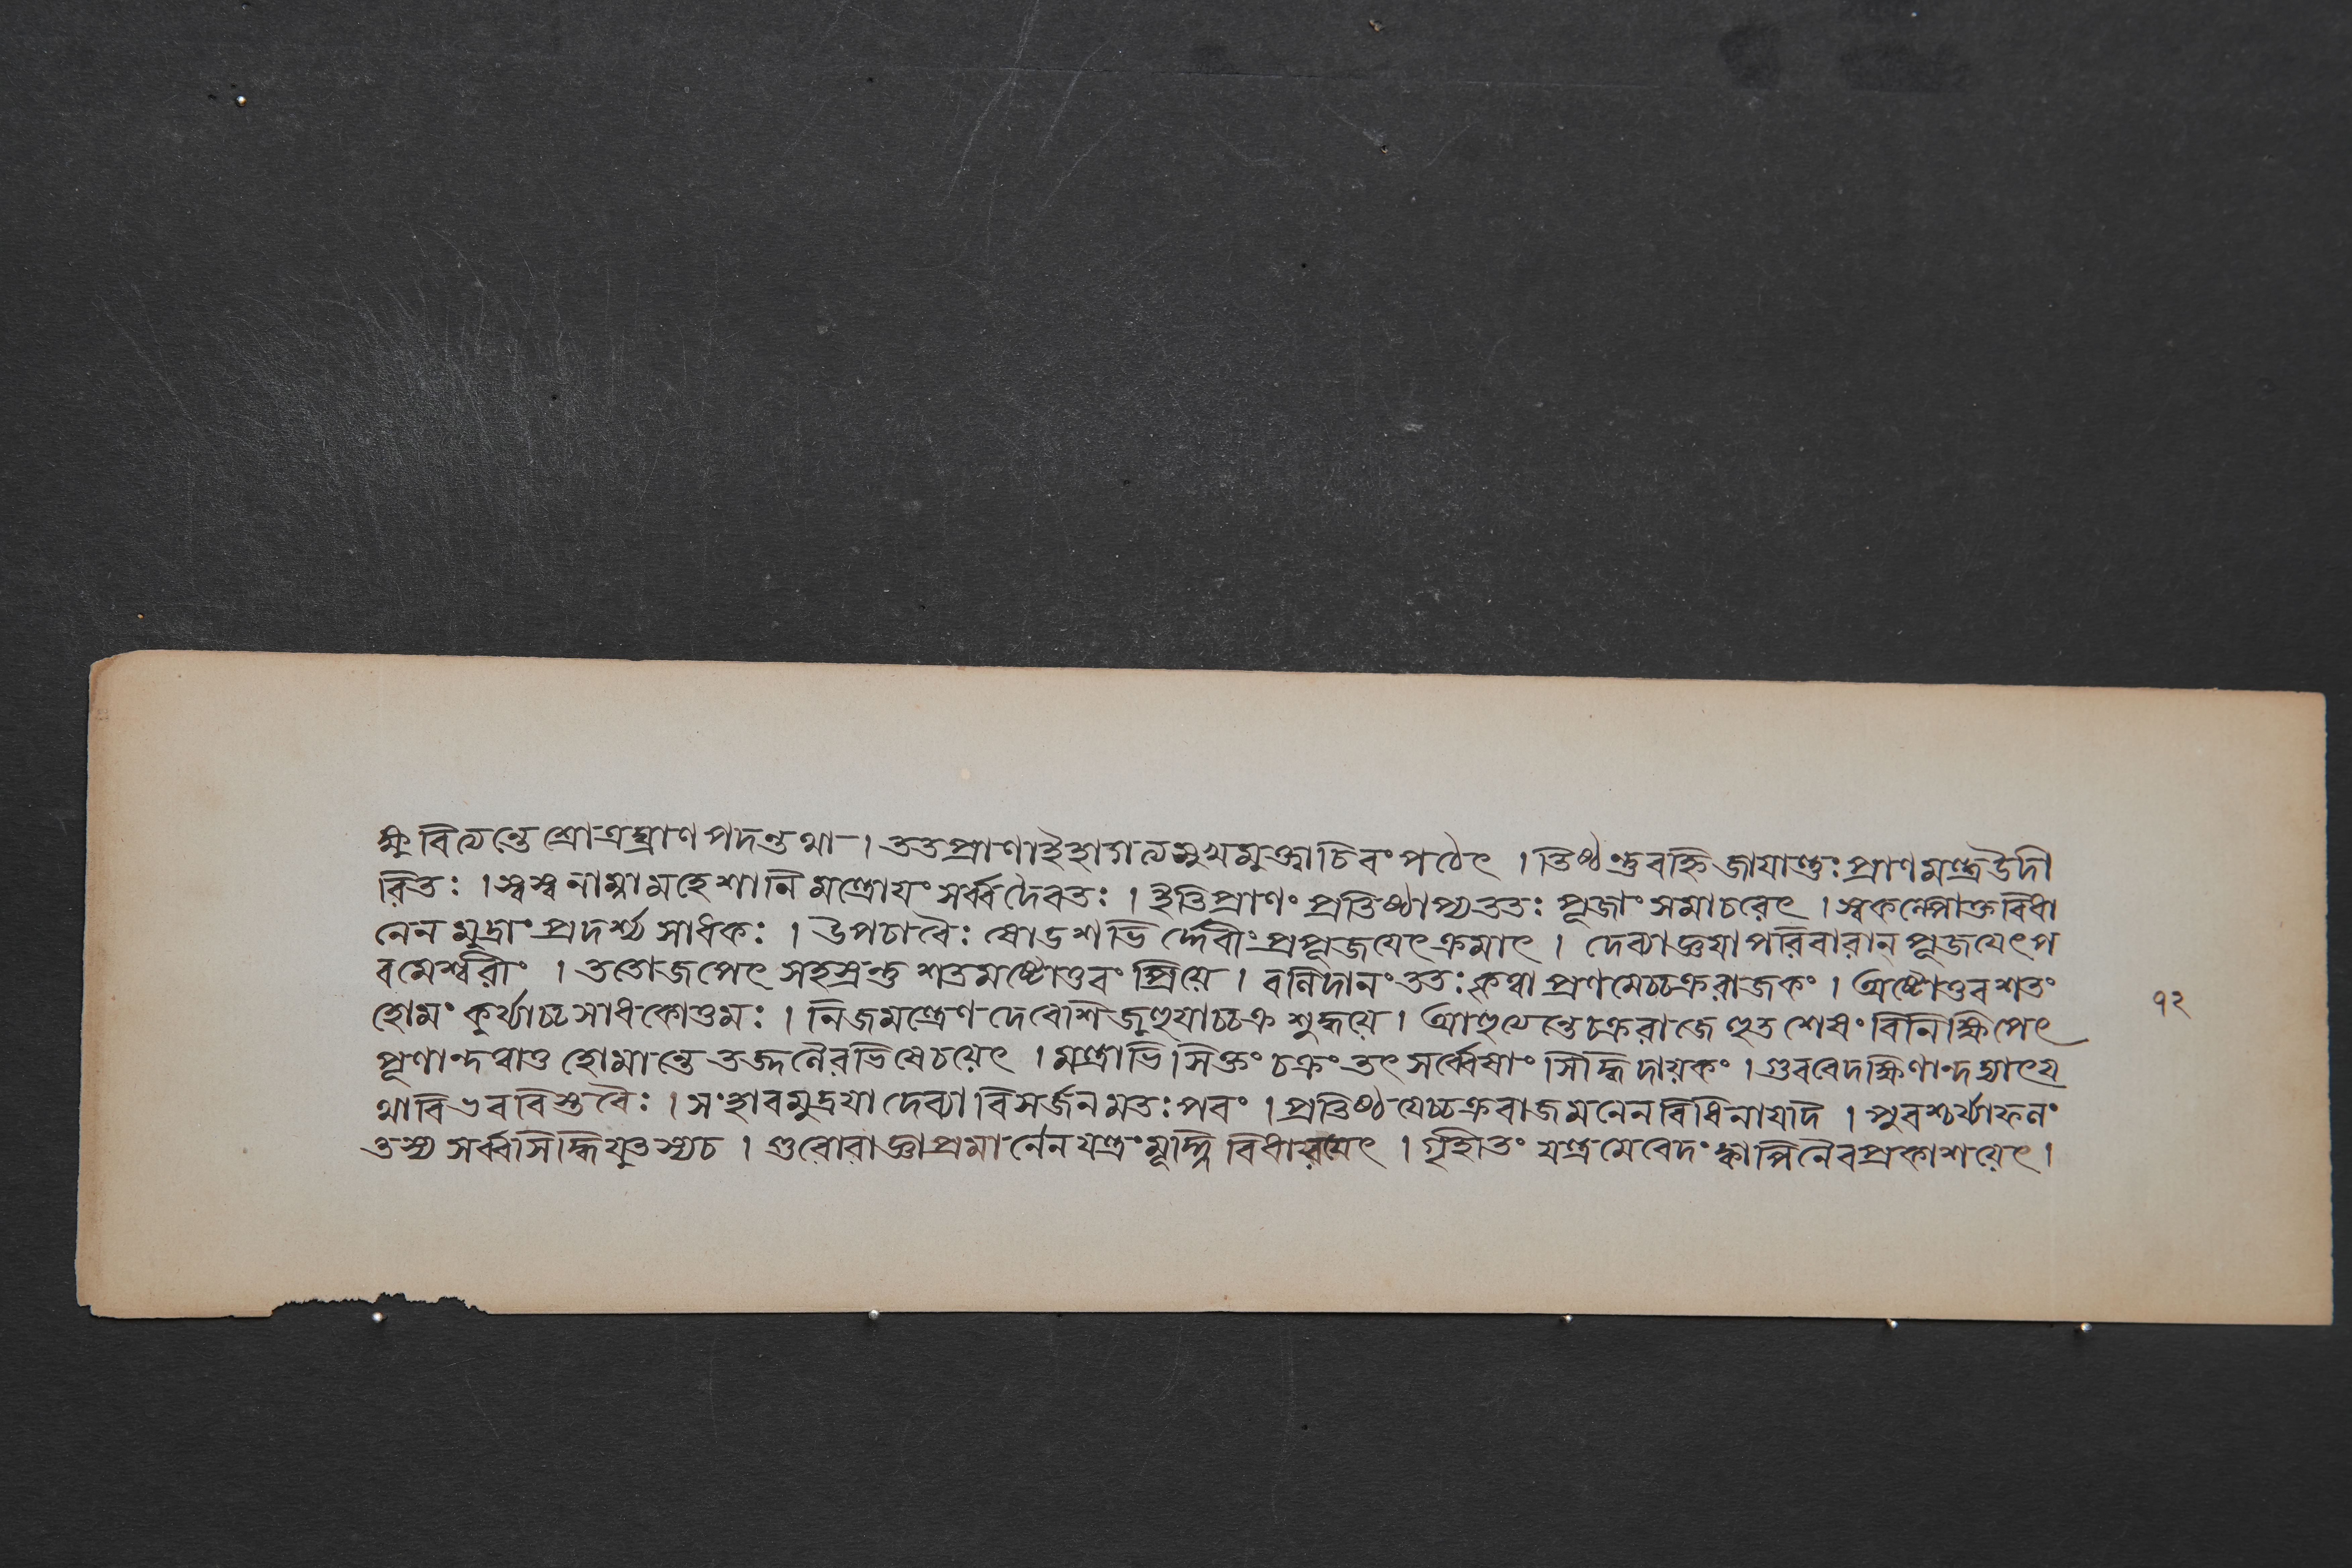 ক্ষুবিত্যন্তে শ্রোত্রঘ্রাণপদন্তথা । ততপ্রাণাইহাগত্যসুখমুক্ত্বাচিবং পঠেৎ । তিষ্ঠন্তুবহ্নিজাযান্তুঃ প্রাণমন্ত্রউদী
রিতঃ । স্বস্বনাম্নামহেশানি মন্ত্রোযং সর্ব্বদৈবতঃ । ইতিপ্রাণং প্রতিষ্ঠাপ্যততঃ পূজাং সমাচরেৎ । স্বকল্পোক্তবিধা
নেন মুদ্রাং প্রদর্শ্য সাধকঃ । উপচাবৈঃ ষোডশভির্দ্দেবীং প্রপূজযেৎক্রমাৎ । দেব্যাজ্ঞযাপরিবারান্ পূজযেৎপ
বমেশ্বরীং । ততোজপেৎ সহস্রন্তু শতমষ্টোত্তবং প্রিয়ে । বলিদানং ততঃ কৃত্বা প্রণমেচ্চক্ররাজকং । অষ্টোত্তবশতং
হোমং কুর্য্যাচ্চসাধকোত্তমঃ । নিজমন্ত্রেণ দেবেশি জুহুযাচ্চক্রশুদ্ধয়ে । আহুযেন্তে চক্ররাজে হুতশেষং বিনিক্ষিপেৎ
পূণান্দত্বাতু হোমান্তে তজ্জলৈরভিষেচয়েৎ । মন্ত্রাভিসিক্তং চক্রং তৎ সর্ব্বেষাং সিদ্ধিদায়কং । গুরবেদক্ষিণান্দদ্যাৎয
থাবিভববিস্তবৈঃ । সংহাবমুদ্রযা দেব্যা বিসর্জনমতঃপবং । প্রতিষ্ঠযেচ্চক্রবাজমনেন বিধিনাযদি । পুবশ্চর্য্যাফলং
তস্য সর্ব্বসিদ্ধিযুতস্যচ । গুরোরাজ্ঞাপ্রমানেন যন্ত্রং মূর্দ্ধ্নি বিধারযেৎ । গৃহীতং যন্ত্রমেবেদং ক্বাপিনৈবপ্রকাশয়েৎ ।
१२